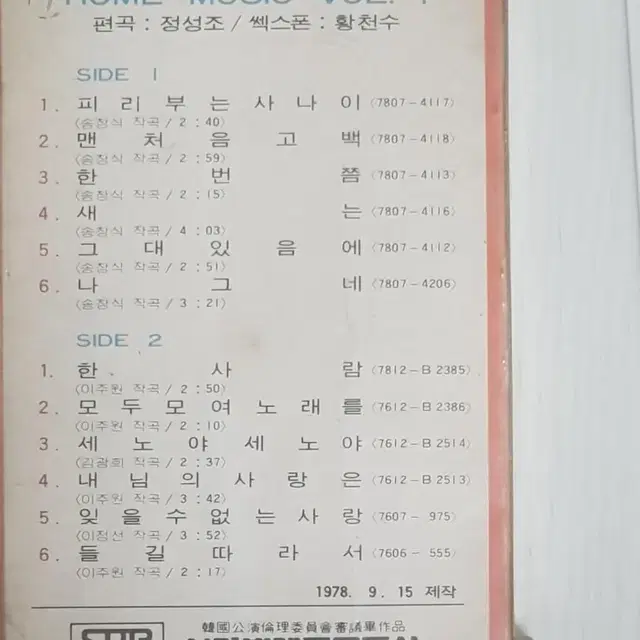 HOME MUSIC VOL. 1
편곡 : 정성조 / 쎅스폰 : 황천수
SIDE 1
1. 피리부는사나이 (7807-4117)
(송창식 작곡 / 2 : 40)
2. 맨처음고백 (7807-4118)
(송창식 작곡 / 2 : 59)
3. 한번쯤 (7807-4113)
(송창식 작곡 / 2 : 15)
4. 새는 (7807-4116)
(송창식 작곡 / 4 : 03)
5. 그대있음에 (7807-4112)
(송창식 작곡 / 2 : 51)
6. 나그네 (7807-4206)
(송창식 작곡 / 3 : 21)
SIDE 2
1. 한사람 (7812-B2385)
(이주원 작곡 / 2 : 50)
2. 모두모여노래를 (7612-B2386)
(이주원 작곡 / 2 : 10)
3. 세노야세노야 (7612-B2514)
(김광희 작곡 / 2 : 37)
4. 내님의사랑은 (7612-B2513)
(이주원 작곡 / 3 : 42)
5. 잊을수없는사랑 (7607-975)
(이정선 작곡 / 3 : 52)
6. 들길따라서 (7606-555)
(이주원 작곡 / 2 : 17)
1978. 9. 15 제작
韓國公演倫理委員會審議畢作品